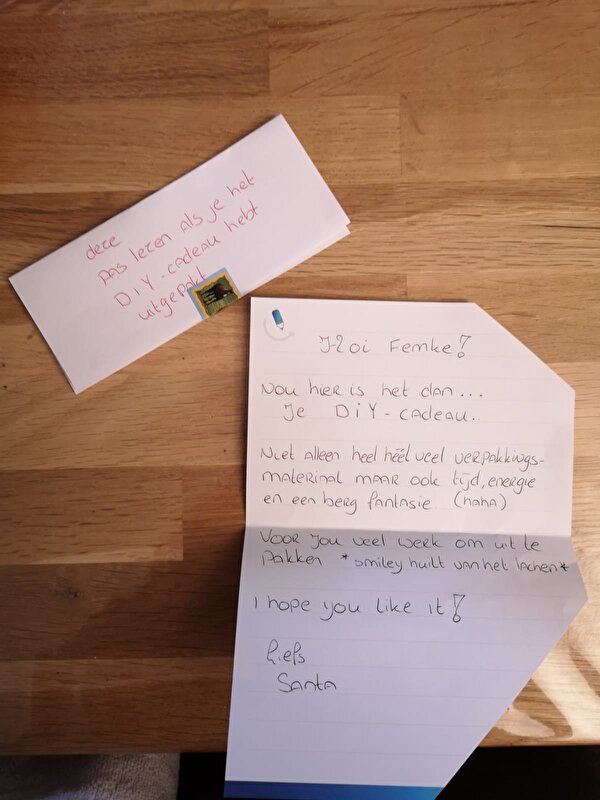 deze
Pas lezen als je het
DIY-cadeau hebt
uitgepakt
Hoi Femke!
Nou hier is het dan...
Je DIY-cadeau..
Niet alleen heel héél veel verpakkings-
materiaal maar ook tijd, energie
en een berg fantasie (haha)
Voor jou veel werk om uit te
pakken *smiley huilt van het lachen*
I hope you like it!
Liefs
Santa